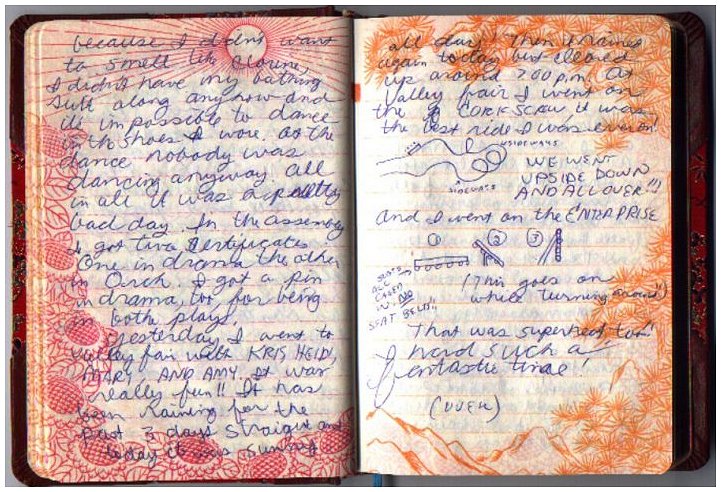 because I didn't want
to smell like Clorine,
I didn't have my bathing
suit along anyhow and
it's impossible to dance
in the shoes I wore. At the
dance nobody was
dancing anyway. all
in all it was a pretty
bad day. In the assembly
I got two certificates
One in drama the other
in Orch. I got a pin
in drama, too, for being
in both plays.
Yesterday I went to
Valley fair with KRIS HEIDI,
MARY AND AMY. It was
really fun!! It has
been raining for the
past 3 days straight and
today it was sunny
all day! Then it rained
again today but cleared
up around 7:00 p.m. At
Valley fair I went on
the CORKSCREW, it was
the best ride I was ever on!
UPSIDEWAYS
SIDEWAYS
WE WENT
UPSIDE DOWN
AND ALL OVER!!)
and I went on the ENTERPRISE
① ② ③
SEATS
ALL
CAGED
IN, NO
SEAT BELTS!!
(This goes on
while turning around!!)
That was super neat too!
had such a
fantastic time!